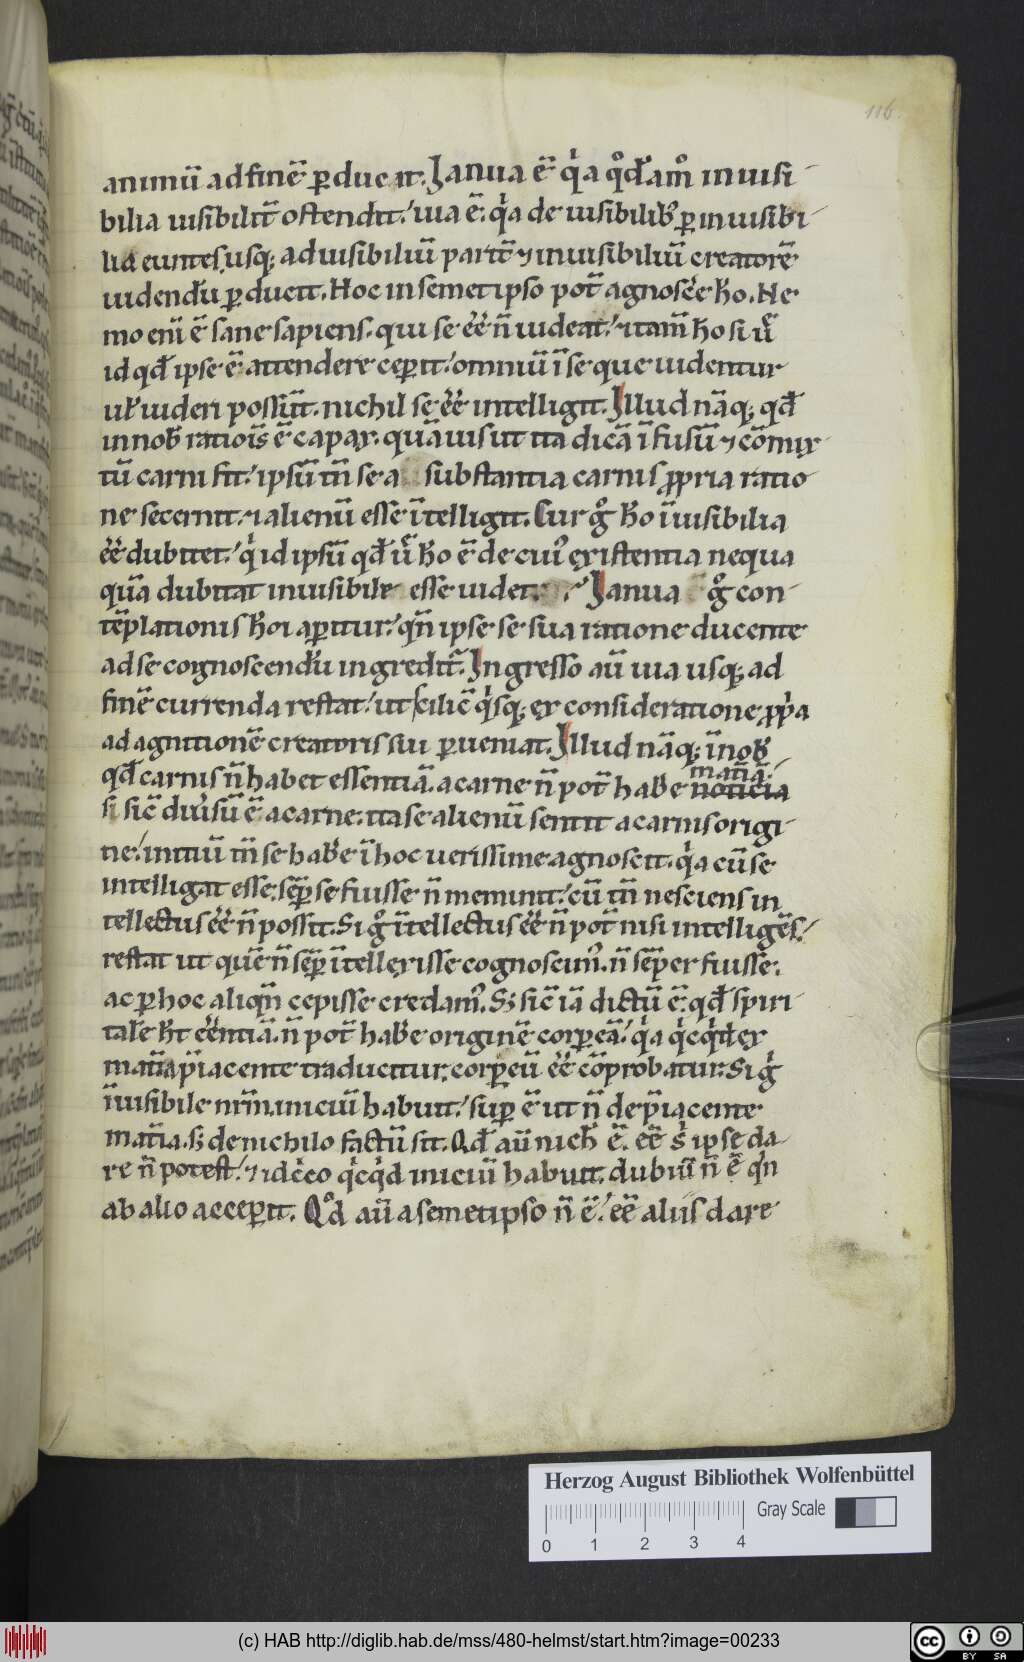 116.
animū ad finē ꝑducat. Janua ē q̇a qͦdām̊ inuisi-
bilia uisibilit̄ ostendit. uia ē. q̇a de uisibilibꝰ ꝑ inuisibi-
lia euntes, usq; ad uisibiliū partē ⁊ inuisibiliū creatorē
uidendū ꝑducit. Hoc in semetipso pot̄ agnoscē hō. Ne-
mo enī ē sane sapiens. qui se ēē n̄ uideat. ⁊ tam̄ hō si ū̊
id qđ ipse ē attendere ceꝑit. omniū ī se que uidentur
uƚ uideri possūt. nichil se ēē intelligit. Illud nāq; qđ
in nob̄ ratiōis ē capax. quāuis ut ita dicā īfusū ⁊ cōmix-
tū carni sit. ipsū tn̄ se a substantia carnis ꝓpria ratio-
ne secernit. ⁊ alienū esse ītelligit. Cur gͦ hō īuisibilia
ēē dubitet. q̇ id ipsū qđ ū̊ hō ē de cuiꝰ existentia nequa-
quā dubitat inuisibile esse uidet. Janua gͦ con-
tēplationis hōi aꝑitur. qn̄ ipse se sua ratione ducente
ad se cognoscendū ingredit̄. Ingresso aū uia usq; ad
finē currenda restat. ut scilic̄ q̇sq; ex consideratione ꝓpͥa
ad agnitionē creatoris sui ꝑueniat. Illud nāq; ī nob̄
qđ carnis n̄ habet essentiā. a carne n̄ potē habe matīā.
noticia
si sic̄ diuisū ē a carne. ita se alienū sentit a carnis origi-
ne. initiū tn̄ se habē ī hoc uerissime agnoscit. q̇a cū se
intelligat esse. sēꝑ se fuisse n̄ meminit. cū tn̄ nesciens in-
tellectus ēē n̄ possit. Si gͦ ītellectus ēē n̄ potē nisi intelligēs.
restat ut quē n̄ sēꝑ ītellexisse cognoscimꝰ. n̄ sēper fuisse.
ac ꝑ hoc aliqn̄ cepisse credamꝰ. Sꝫ sic̄ iā dictū ē. qđ spiri-
tale hꝫ ēēntiā. n̄ potē habē originē corꝑeā. q̇a q̇cq̇d ex
matīa p̄iacente traducitur. corꝑeū ēē cōprobatur. Si gͦ
īuisibile nr̄m. iniciū habuit. suꝑ ē ut n̄ de p̄iacente
matīa. sꝫ de nichilo factū sit. Qđ aū nich̄ ē. ēē s̊ ipse da-
re n̄ potest. ⁊ idc̊co q̇cq̇d iniciū habuit. dubiū n̄ ē q̇n
ab alio acceꝑit. Qđ aū a semetipso n̄ ē. ēē aliis dare
Herzog August Bibliothek Wolfenbüttel
Gray Scale
0 1 2 3 4
(c) HAB http://diglib.hab.de/mss/480-helmst/start.htm?image=00233
cc BY SA